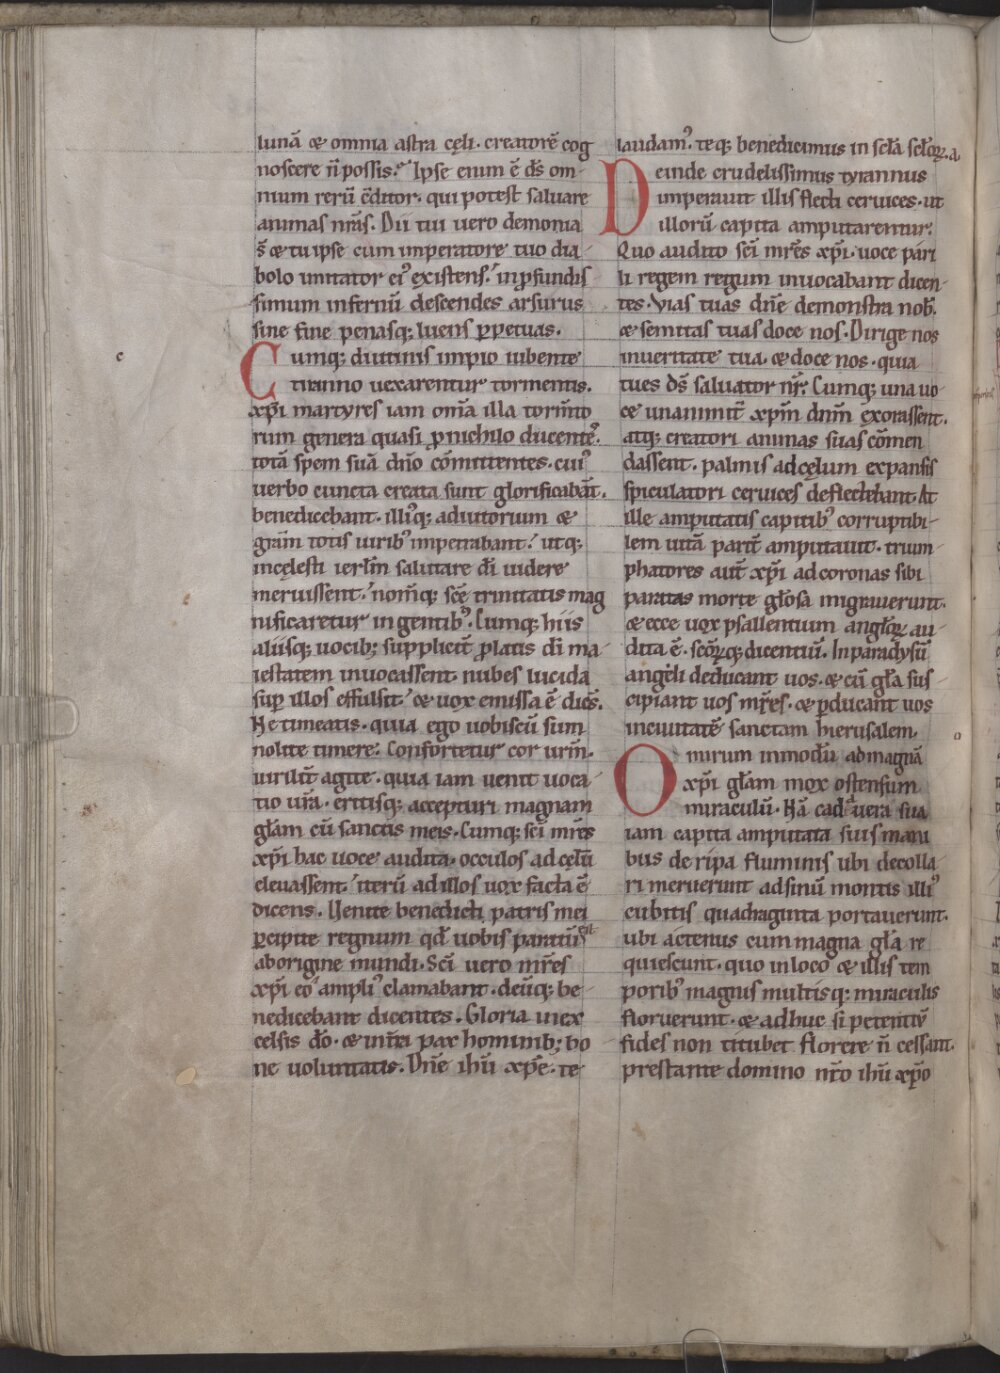 lunā & omnia astra cęli· creatorē cog
noscere n̄ possis. Ipse enim ē ds̄ om-
nium rerū c̄ditor· qui potest saluare
animas nrās. Dii tui uero demonia
s̄ & tu ipse cum imperatore tuo dia-
bolo imitator ei᾽ existens· in ꝓfundis
simum infernū descendes arsurus
sine fine penasq; luens ꝑpetuas.
Cumq; diutinis impio iubente
tiranno uexarentur tormentis.
xp̄i martyres iam om̄a illa torm̄to
rum genera quasi ꝓ nichilo ducentes᾽.
totā spem suā dn̄o cōmittentes· cui᾽
uerbo cuncta creata sunt glorificabāt.
benedicebant· illi᾽q; adiutorium &
grām totis uirib᾽ impetrabant· utq;
in cęlesti ierlm̄ salutare dī uidere
meruissent· nom̄q; scē trinitatis mag
nificaretur in gentib᾽. Cumq; hiis
aliisq; uocib; supplicit̄ ꝓlatis dī ma-
iestatem inuocassent· nubes lucida
suꝑ illos effulsit· & uox emissa ē dicēs.
Ne timeatis· quia ego uobiscū sum
nolite timere· Confortetur cor urm̄·
uirilit̄ agite· quia iam uenit uoca-
tio urā· eritisq; accepturi magnam
glām cū sanctis meis. Cumq; scī mr̄es
xp̄i hac uoce audita· occulos ad cęlū
eleuassent· iterū ad illos uox facta ē
dicens. Uenite benedicti patris mei
ꝑcipite regnum qd̄ uobis paratū est
ab origine mundi. Scī uero mr̄es
xp̄i eo ampli᾽ clamabant· deūq; be-
nedicebant dicentes. Gloria in ex
celsis do᾽· & in tr̄a pax hominib; bo
ne uoluntatis. Dn̄e ihū xp̄e· te
laudam᾽· teq; benedicimus in sclā sclōꝝ. a
Deinde crudelissimus tyrannus
imperauit illis flecti ceruices· ut
illorū capita amputarentur.
Quo audito scī mr̄es xp̄i· uoce pari
li regem regum inuocabant dicen-
tes. Vias tuas dn̄e demonstra nob̄.
& semitas tuas doce nos. Dirige nos
in ueritate tua· & doce nos· quia
tu es ds̄ saluator nr̄. Cumq; una uo-
ce unanimit̄ xp̄m dn̄m exorassent·
atq; creatori animas suas cōmen
dassent· palmis ad cęlum expansis
spiculatori ceruices deflectebant. At
ille amputatis capitib᾽ corruptibi-
lem uitā parit̄ amputauit· trium-
phatores aut̄ xp̄i ad coronas sibi
paratas morte glōsa migrauerunt·
& ecce uox psallentium anglōꝝ au-
dita ē· scōꝝq; dicentiū. In paradysū
angeli deducant uos· & cū glā sus-
cipiant uos mr̄es· & ꝑducant uos
in ciuitatē sanctam hierusalem.
O mirum in modū ad magnā
xp̄i glām mox ostensum
miraculū. Nā cadauera sua
iam capita amputata suis mani
bus de ripa fluminis ubi decolla
ri meruerunt ad sinū montis illi᾽
cubitis quadraginta portauerunt·
ubi actenus cum magna glā re
quiescunt· quo in loco & illis tem
porib᾽ magnis multisq; miraculis
floruerunt· & adhuc si petentiū
fides non titubet florere n̄ cessant·
prestante domino nr̄o ihū xp̄o
c
o